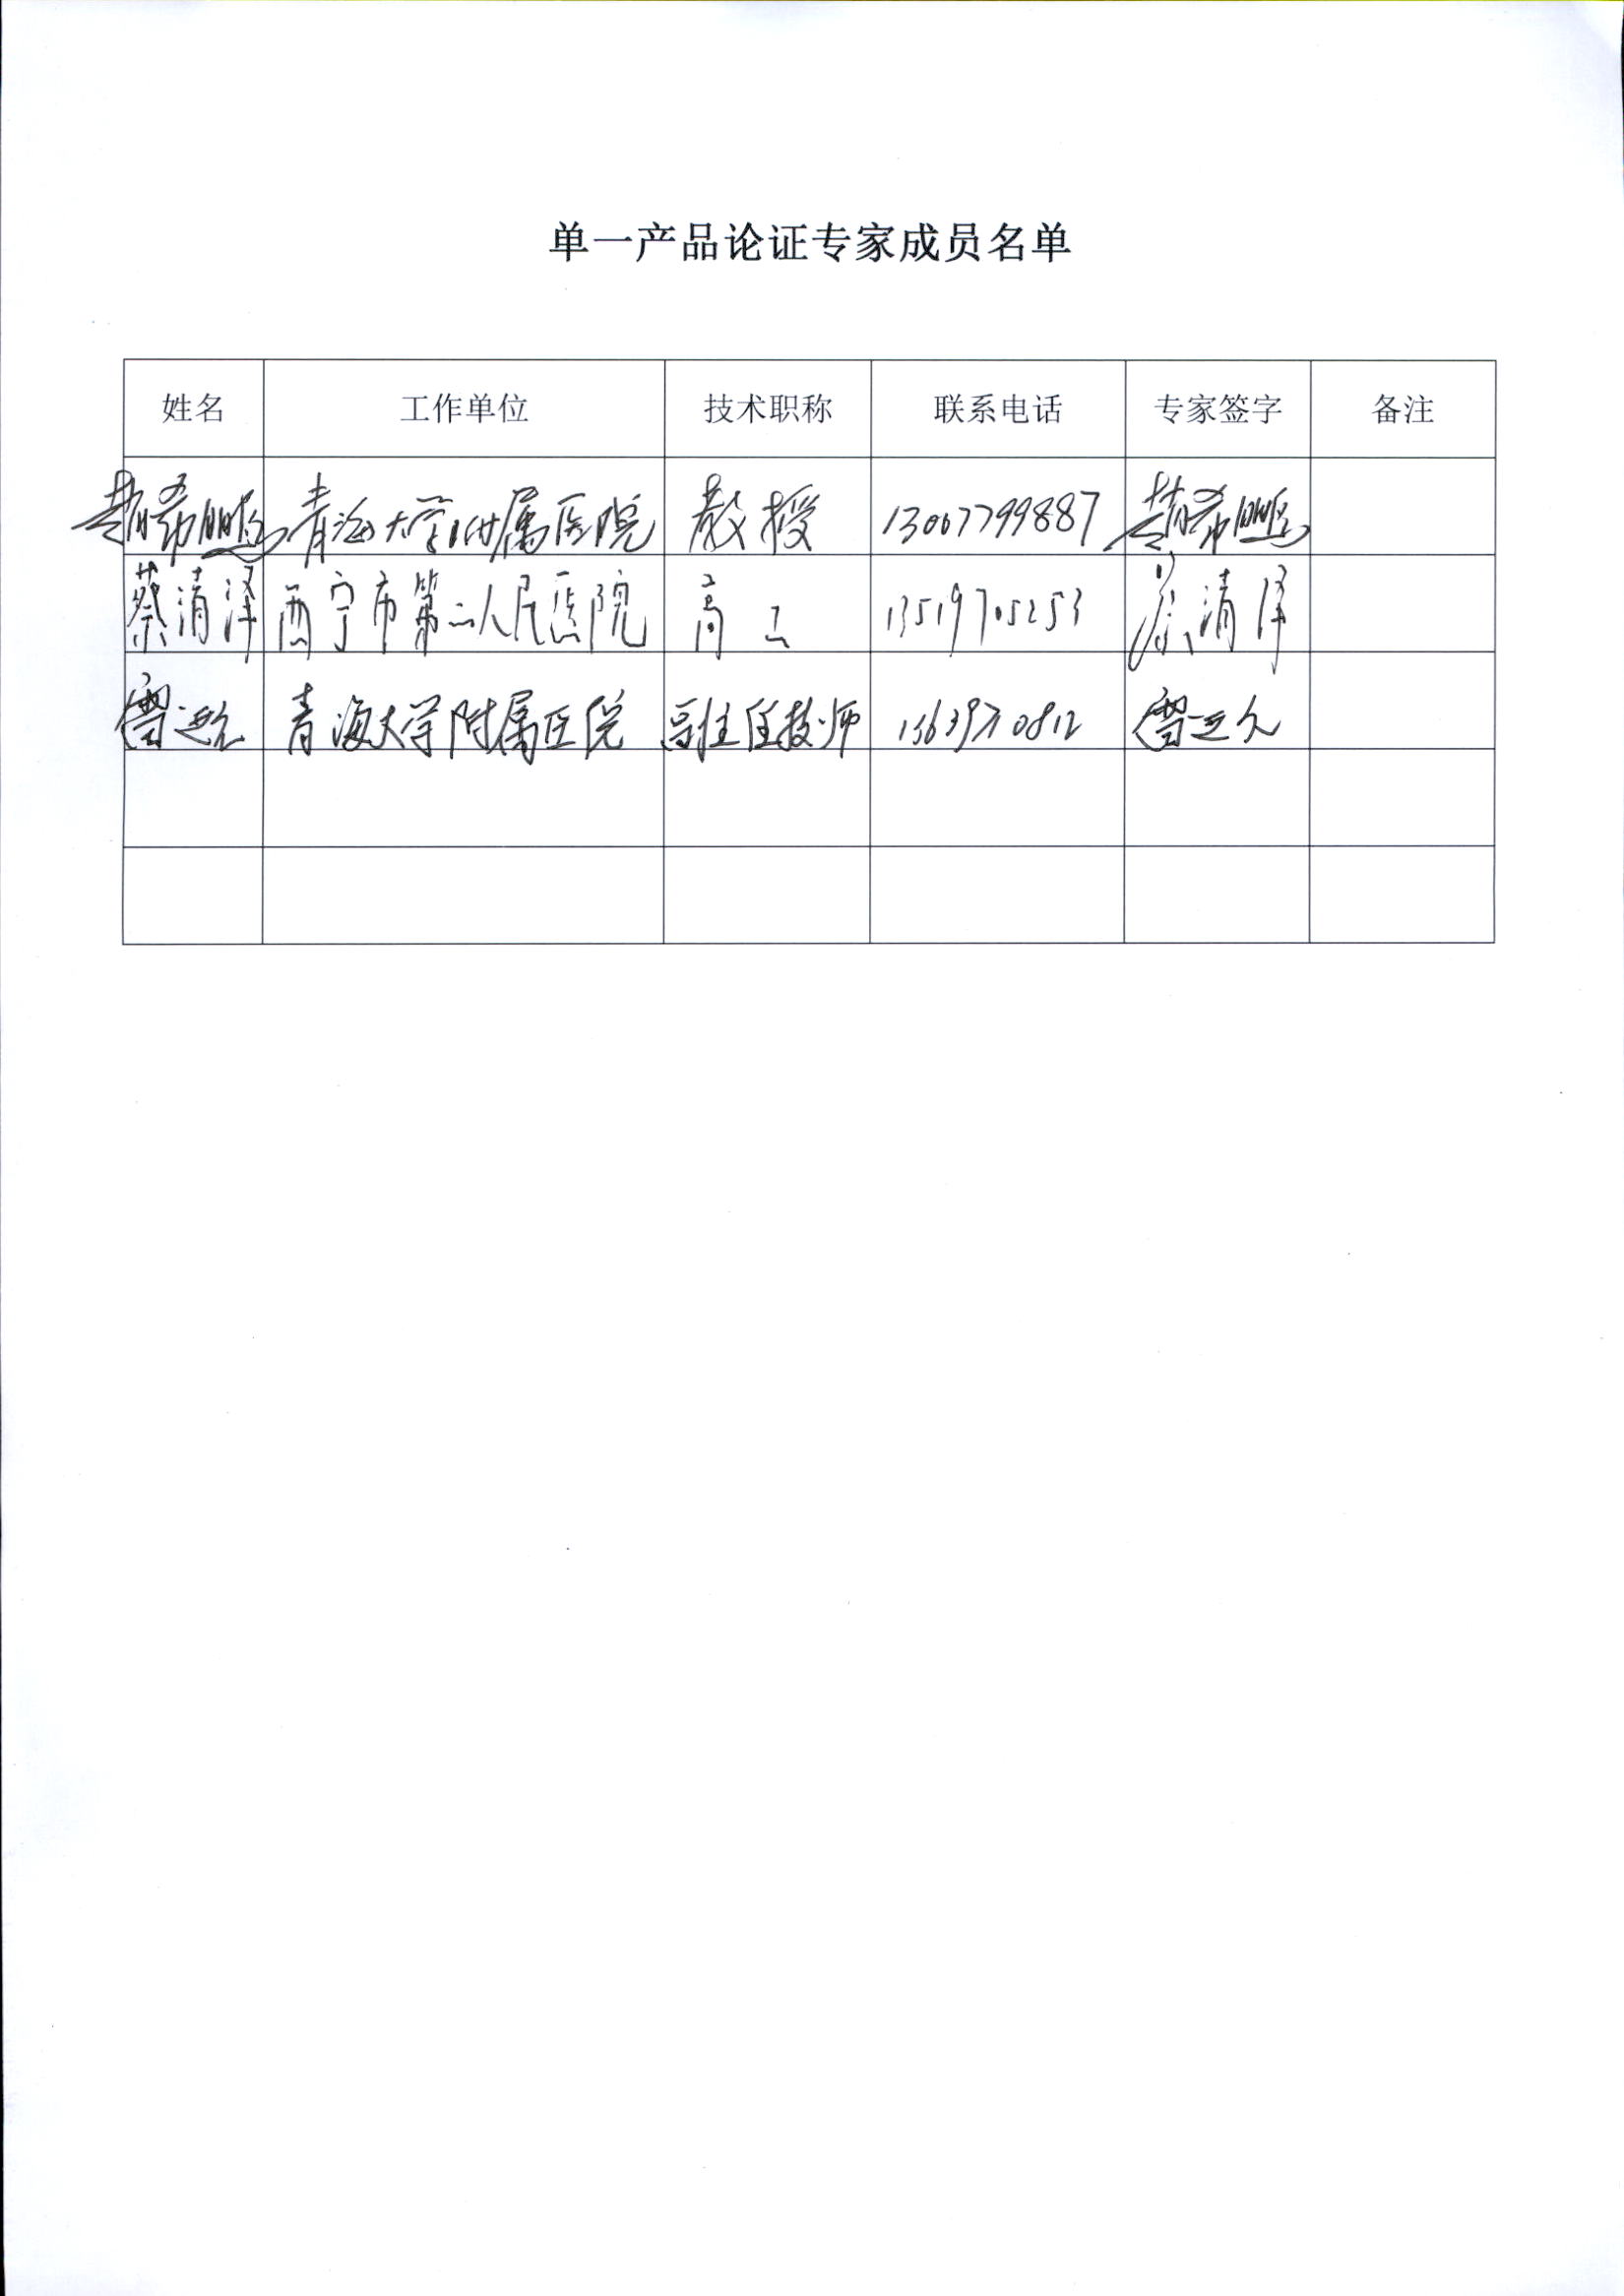 单一产品论证专家成员名单
姓名 工作单位 技术职称 联系电话 专家签字 备注
希鹏 青海大学附属医院 教授 13007799887 希鹏
蔡清泽 西宁市第二人民医院 高工 13519705253 蔡清泽
青海大学附属医院 副主任技师 13639710812